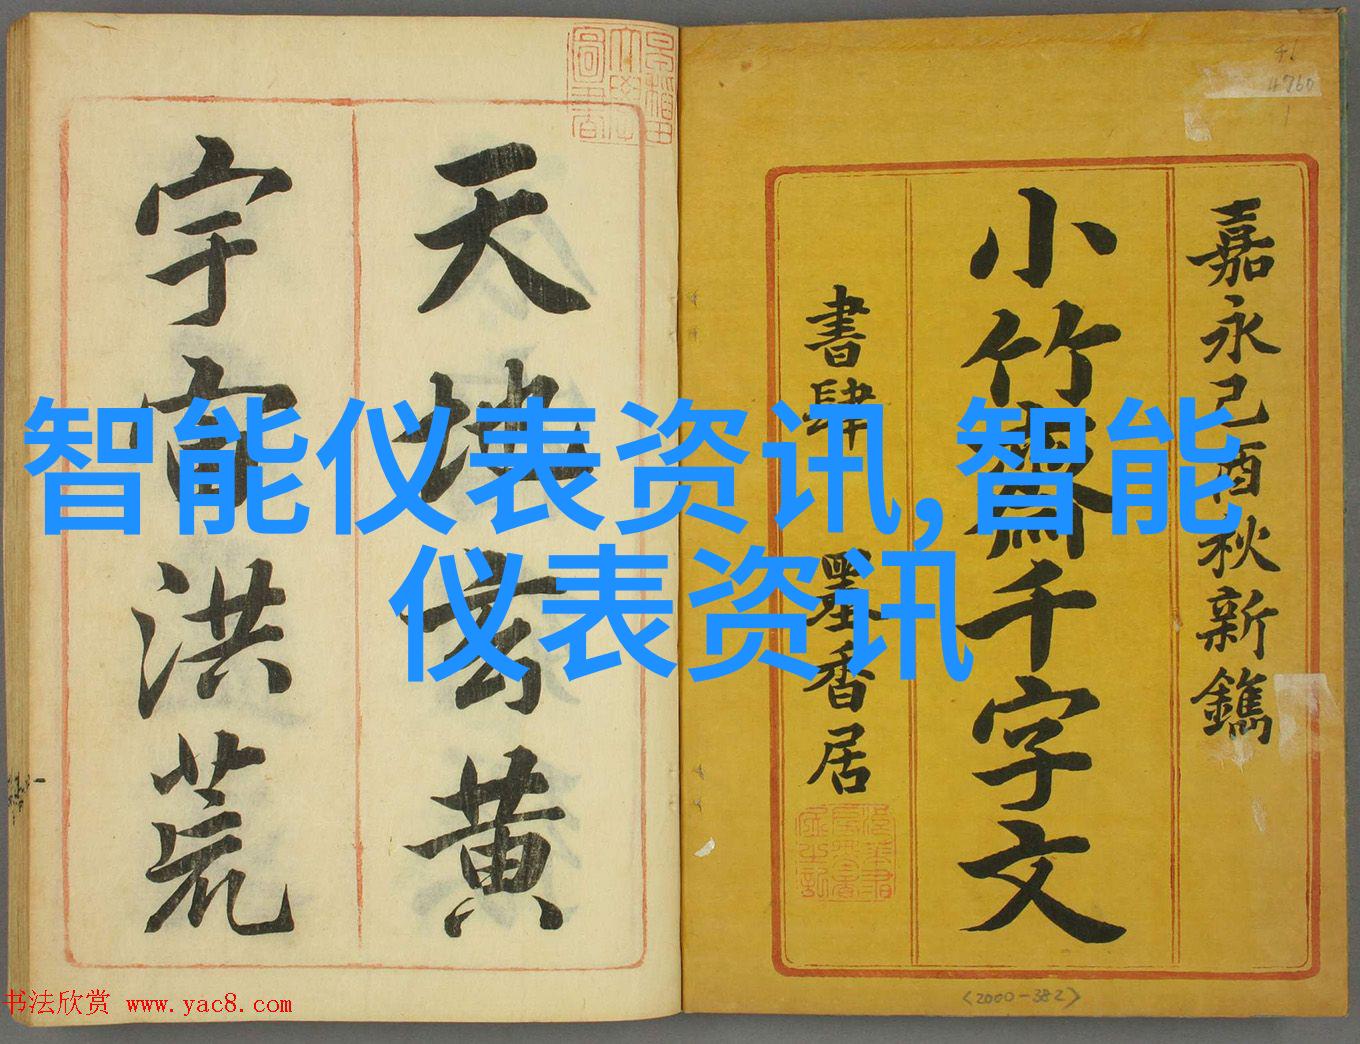 嘉永己酉秋新鐫
小竹齋千字文
書肆 墨香居
天地玄黄
宇宙洪荒
智能仪表资讯,智能
仪表资讯
4760
<2000-382>
书法欣赏 www.yac8.com